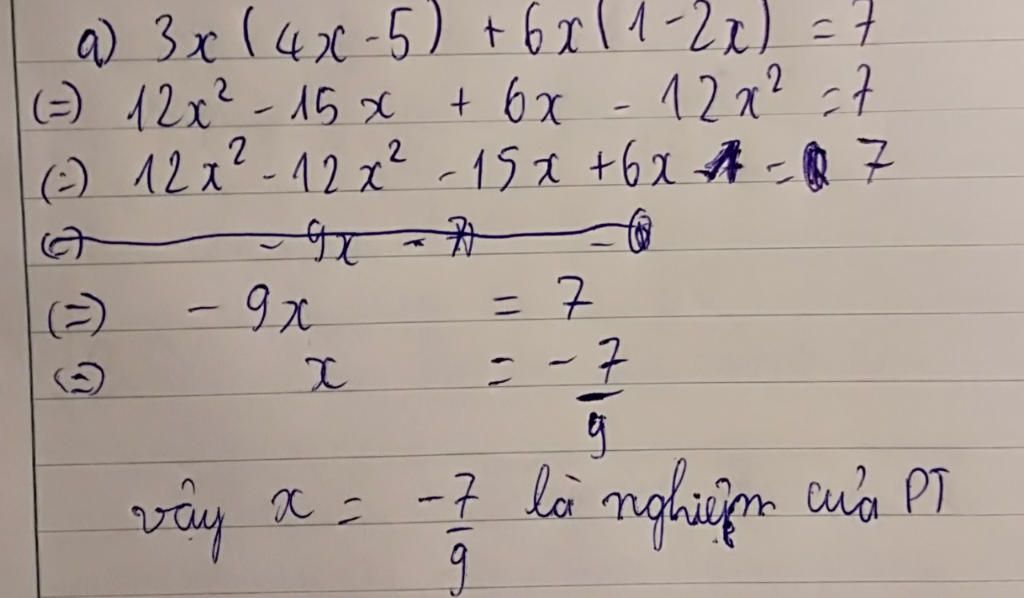 a) 3x(4x-5) + 6x(1-2x) = 7
(=) 12x² - 15x + 6x - 12x² = 7
(=) 12x² - 12x² - 15x + 6x = 7
(=) - 9x - 7 = 0
(=) - 9x = 7
(=) x = -7/9
vậy x = -7/9 là nghiệm của PT